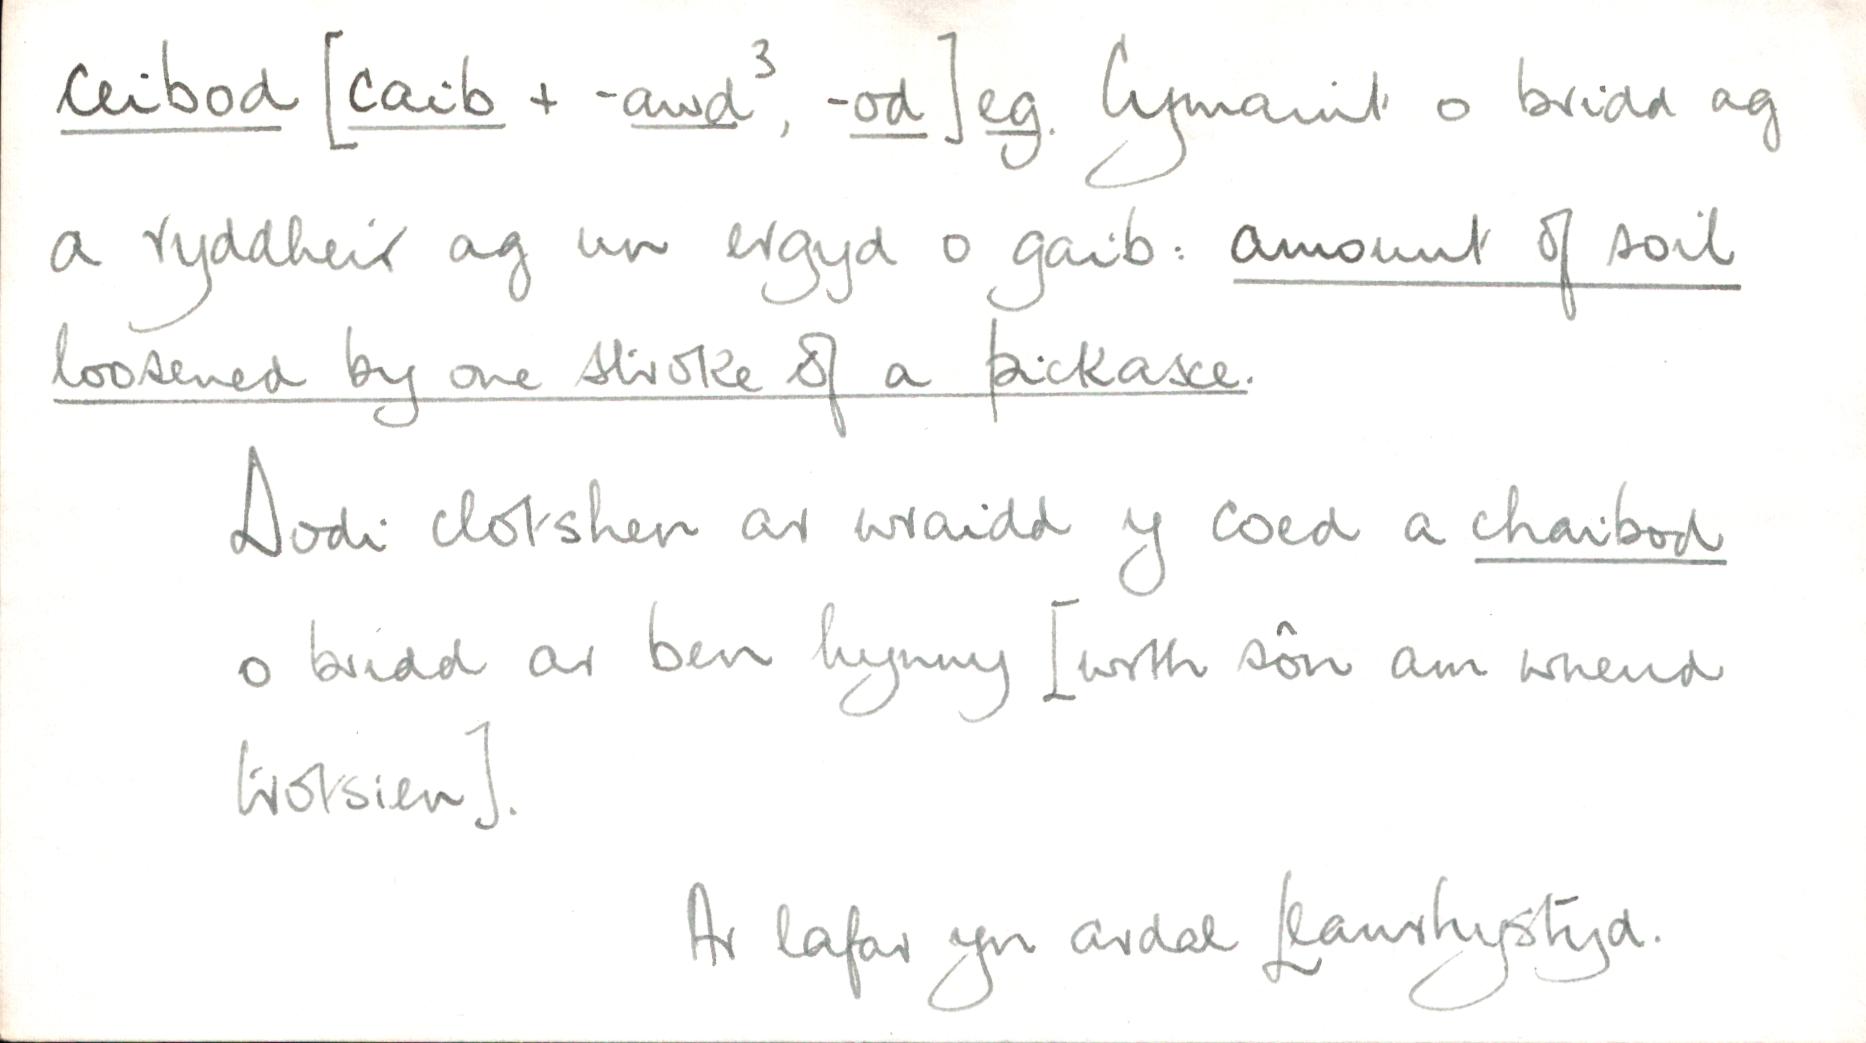 ceibod [caib + -awd³, -od] eg. Cymaint o bridd ag
a ryddheir ag un ergyd o gaib: amount of soil
loosened by one stroke of a pickaxe.
Dodi clotshen ar wraidd y coed a chaibod
o bridd ar ben hynny [wrth sôn am wneud
trotsien].
Ar lafar yn ardal Llanrhystyd.